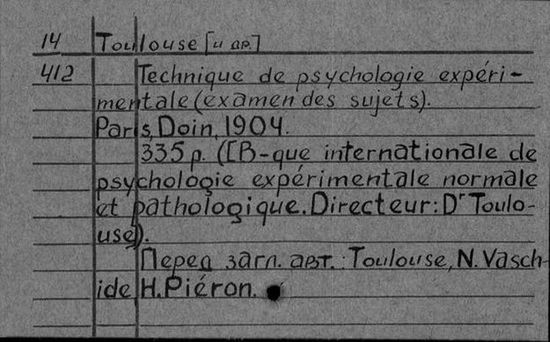 14 Toulouse [и др.]
412 Technique de psychologie expéri-
mentale (examen des sujets).
Paris, Doin, 1904.
335 p. ([B-que internationale de
psychologie expérimentale normale
et pathologique. Directeur: Dr Toulo-
use).
Перед загл. авт.: Toulouse, N. Vasch-
ide, H. Piéron.